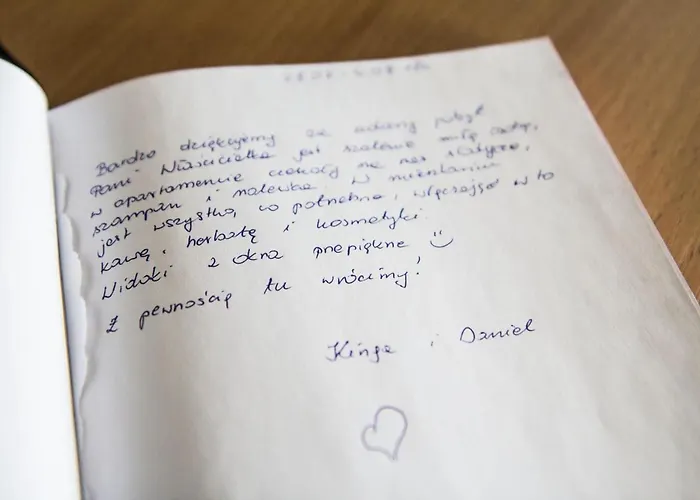 Bardzo dziękujemy za udany pobyt
Pani Właścicielka jest szalenie miłą osobą,
w apartamencie czekały na nas słodycze,
szampan i nalewka. W mieszkaniu
jest wszystko, co potrzebne, włączając w to
kawę, herbatę i kosmetyki.
Widoki z okna przepiękne :)
Z pewnością tu wrócimy!
Kinga i Daniel